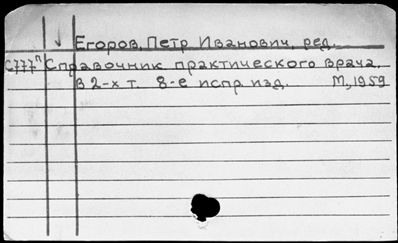 Егоров, Петр Иванович, ред.
С777п Справочник практического врача,
в 2-х т. 8-е испр. изд. М., 1959